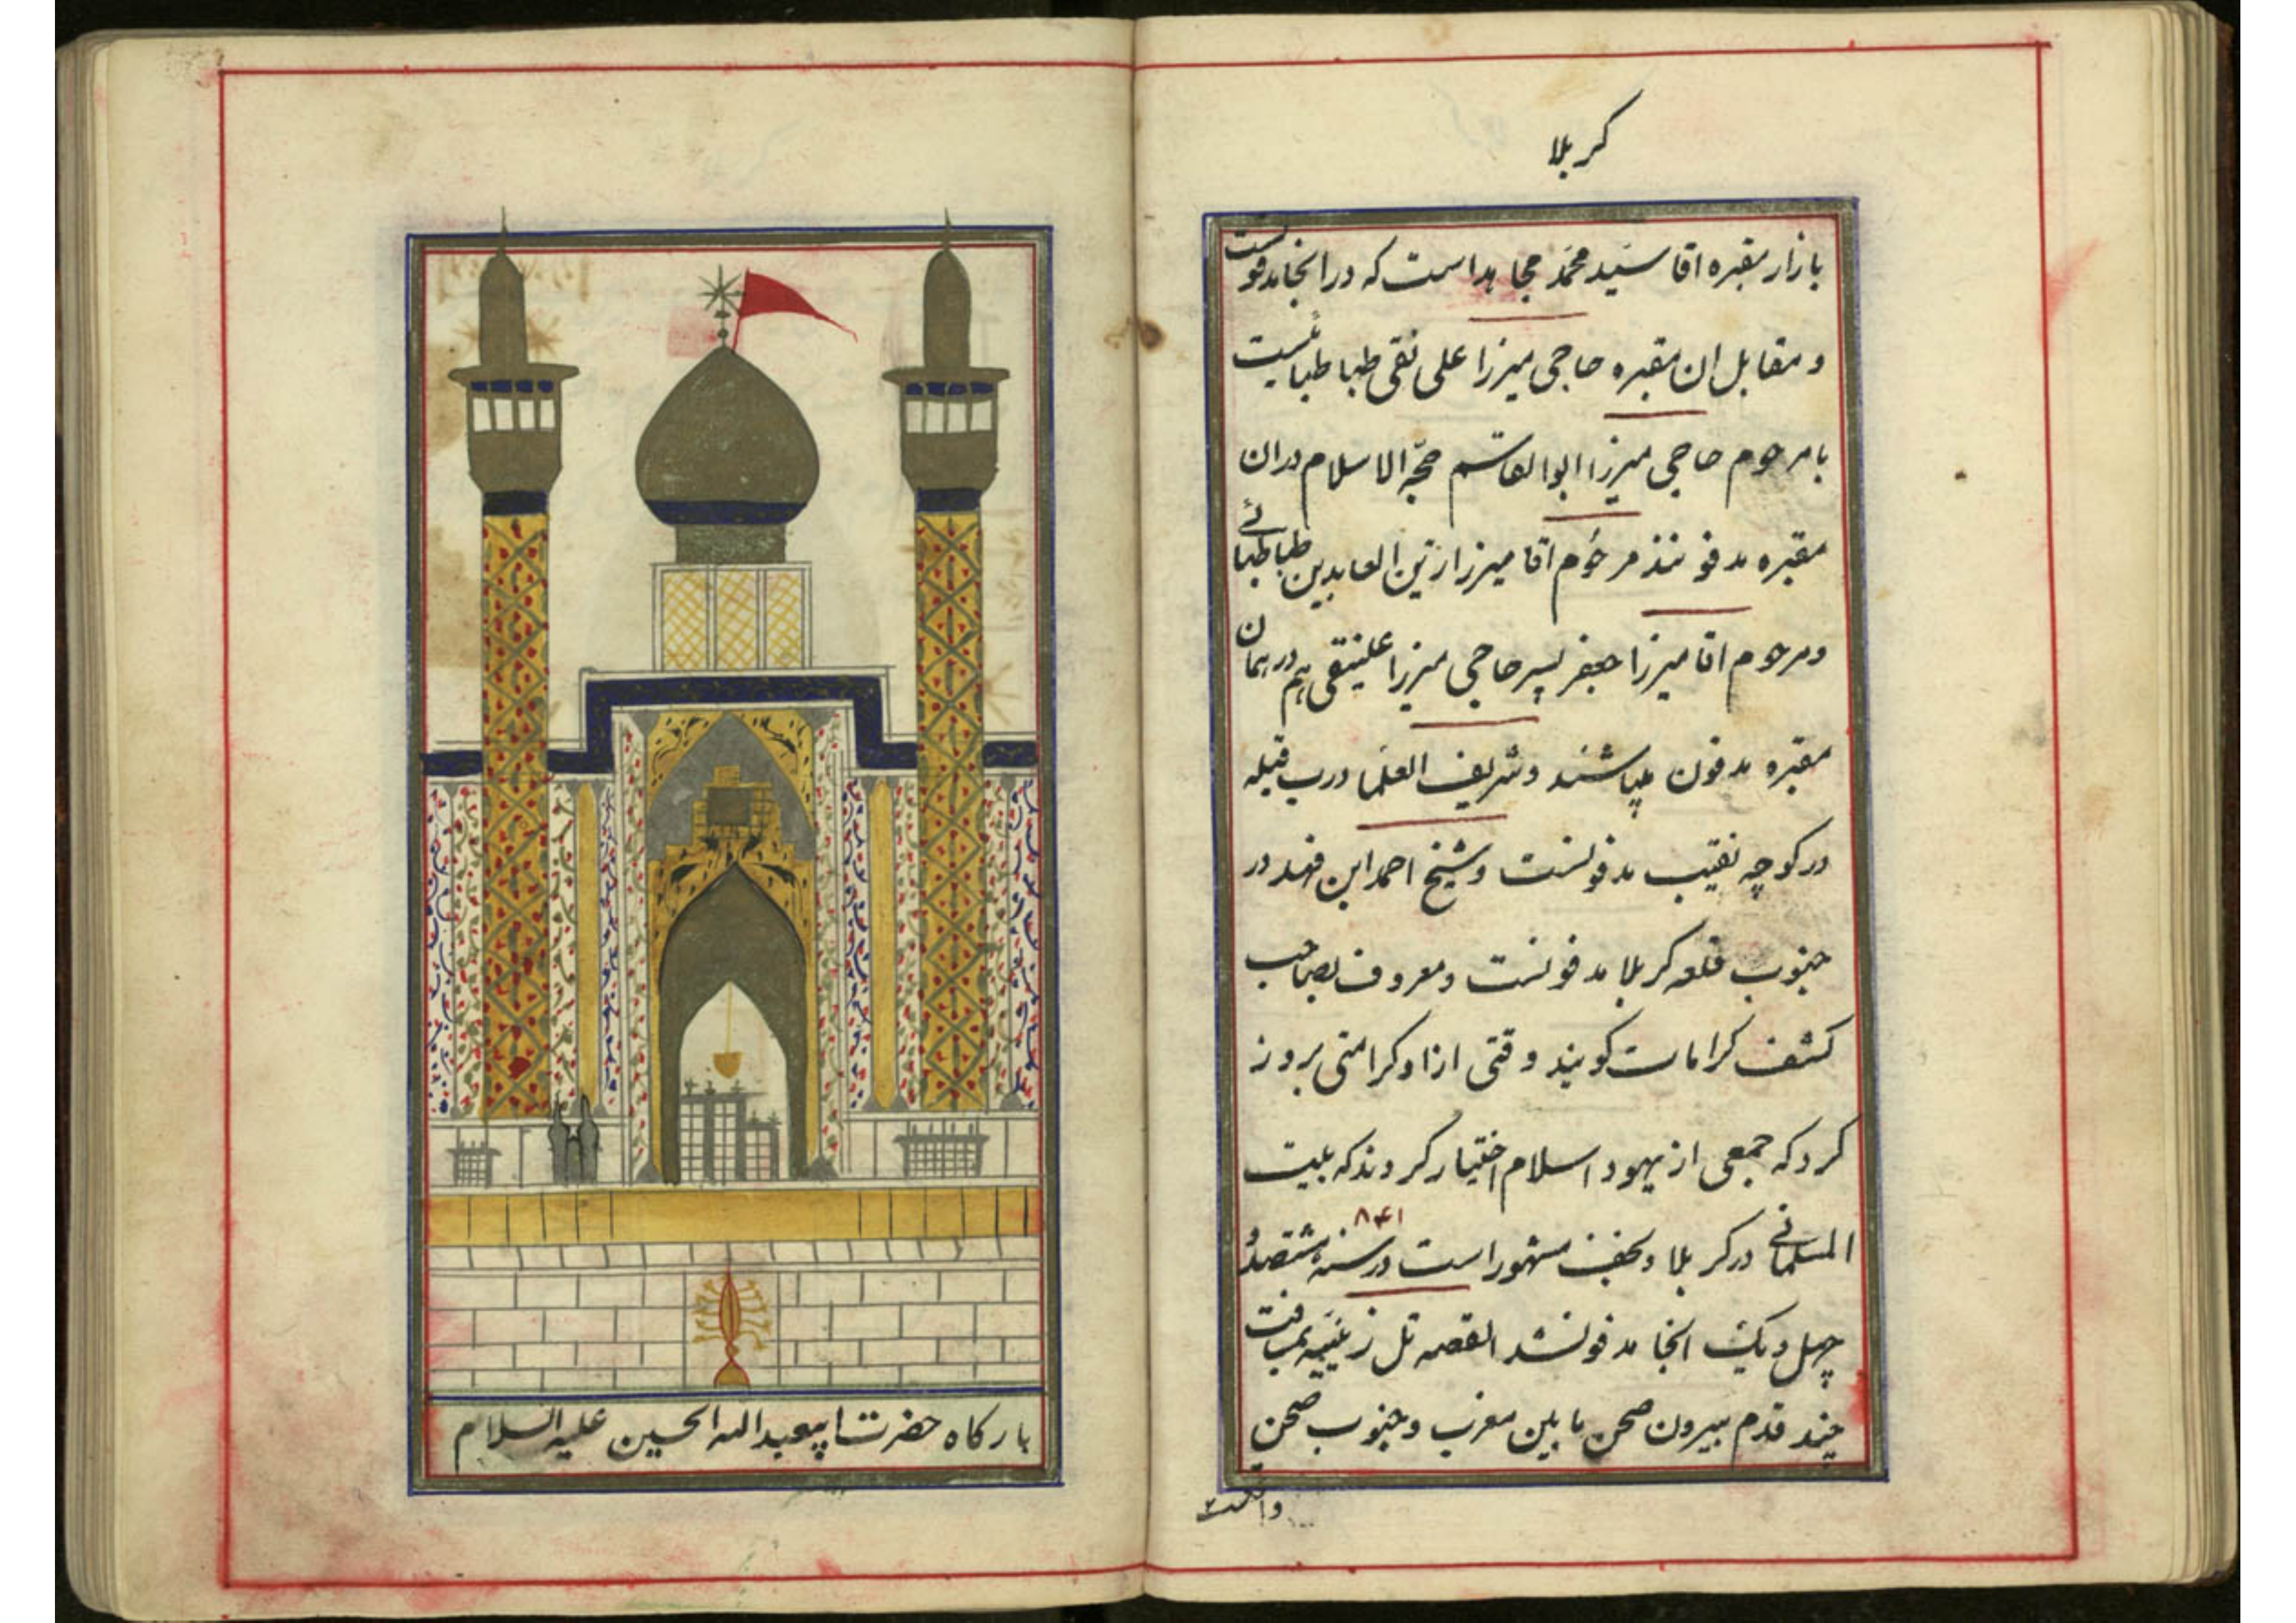 کربلا
بازار مقبره اقا سید محمد مجاهد است که در انجا مدفونست
و مقابل ان مقبره حاجی میرزا علی نقی طباطبائیست
با مرحوم حاجی میرزا ابوالقاسم حجة الاسلام در ان
مقبره مدفونند مرحوم اقا میرزا زین العابدین طباطبائی
و مرحوم اقا میرزا جعفر پسر حاجی میرزا علینقی هم در همان
مقبره مدفون میباشند و شریف العلما درب قبله
در کوچه نقیب مدفونست و شیخ احمد ابن فهد در
جنوب قلعه کربلا مدفونست و معروف بصاحب
کشف کرامات کویند وقتی از او کرامتی بروز
کرد که جمعی از یهود اسلام اختیار کردند که بیت
۸۴۱
المسلمانی در کربلا و نجف مشهور است در سنه هشتصد و
چهل و یک انجا مدفونشد القصه تل زینبیه بمسافت
چند قدم بیرون صحن مابین مغرب و جنوب صحن
بارکاه حضرت ابیعبدالله الحسین علیه السلام